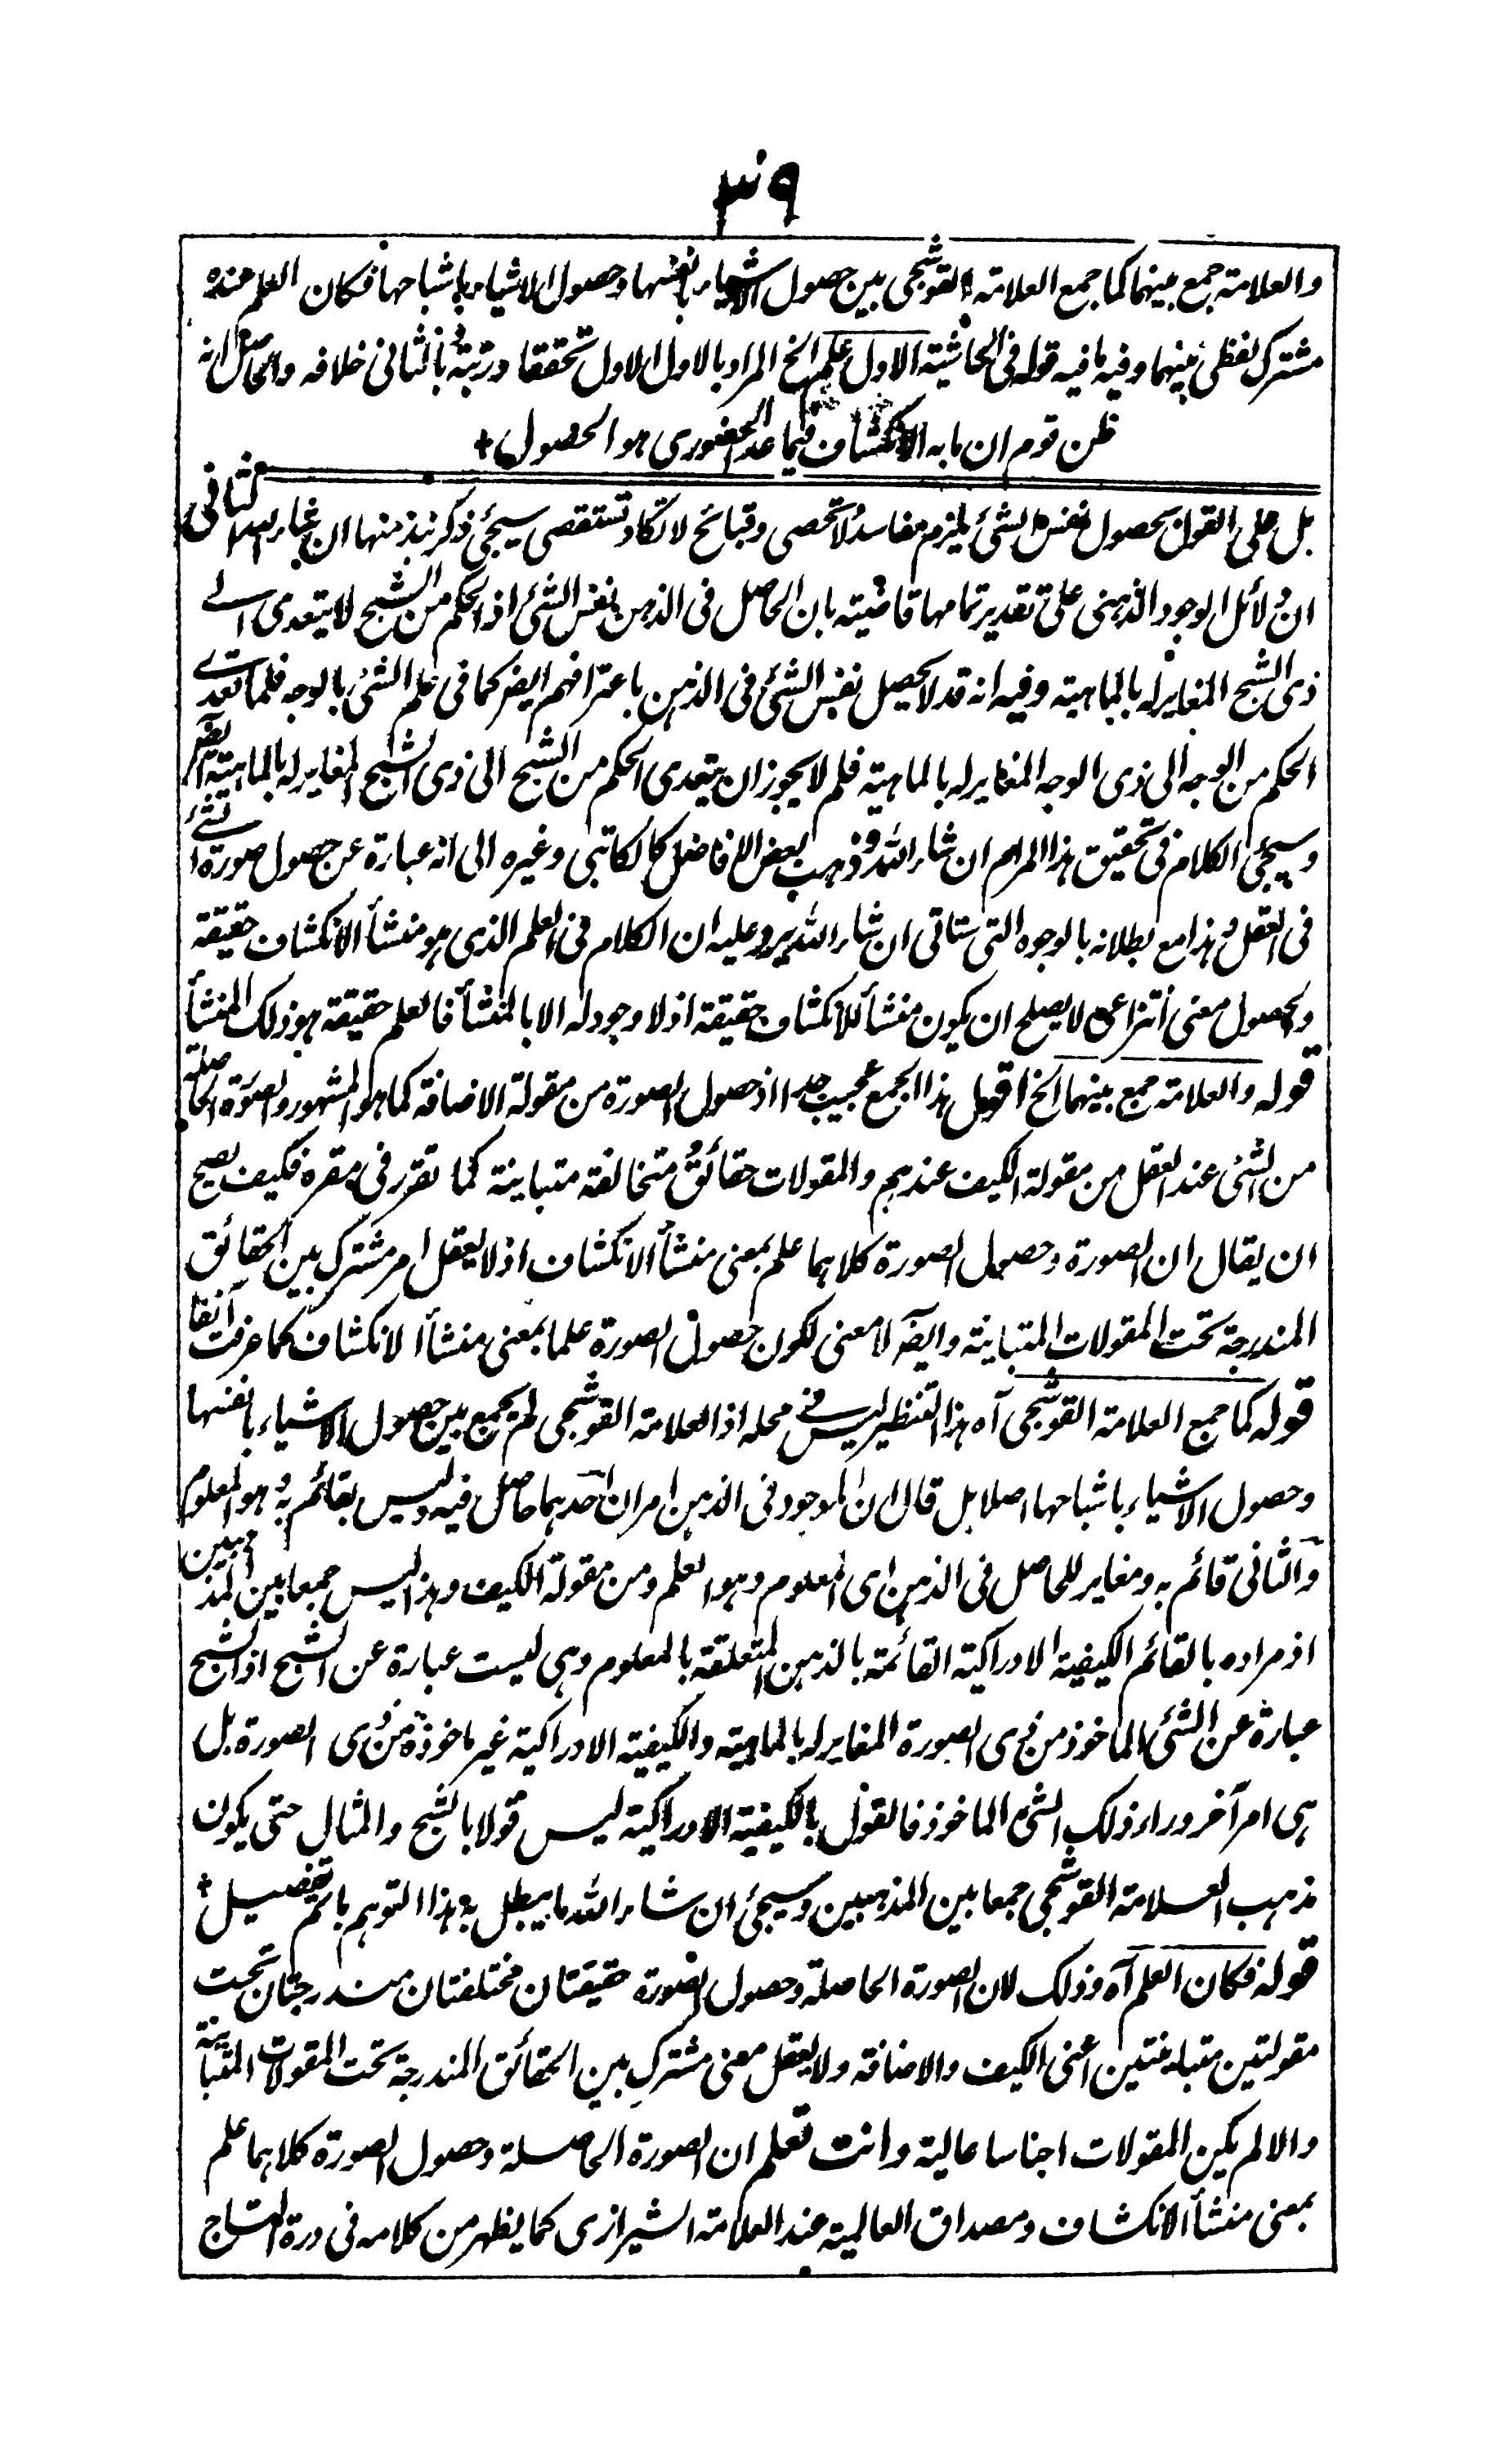 ٣٩
والعلامة جمع بينهما كما جمع العلامة القوشجى بين حصول الاشياء بانفسها وحصول الاشياء باشباحها فكان العلم عنده
مشترك لفظى بينهما وفيه ما فيه قوله فى الحاشية الاول علم الخ المراد بالاول الاول تحققا ورتبة بالثانى خلافه والحاصل انه
ظن قوم ان ما به الانكشاف فيما عدا الحضورى هو الحصول +
بل على القول بحصول نفس الشئ يلزم مفاسد لا تحصى وقبائح لا تكاد تستقصى سيجئ ذكر نبذ منها ان شاء الله الثانى
ان دلائل الوجود الذهنى على تقدير تمامها قاضية بان الحاصل فى الذهن نفس الشئ اذ الحكم من الشبح لا يتعدى الے
ذى الشبح المغاير له بالماهية وفيه انه قد لا يحصل نفس الشئ فى الذهن باعترافهم ايضا كما فى علم الشئ بالوجه فلما تعدے
الحكم من الوجه الى ذى الوجه المغاير له بالماهية فلم لا يجوز ان يتعدى الحكم من الشبح الى ذى الشبح المغاير له بالماهية ايضا
وسيجئ الكلام فى تحقيق هذا المرام ان شاء الله وذهب بعض الافاضل كالكاتبى وغيره الى انه عبارة عن حصول صورة الشئ
فى العقل وهذا مع بطلانه بالوجوه التى ستاتى ان شاء الله يرد عليه ان الكلام فى العلم الذى هو منشأ الانكشاف حقيقة
والحصول معنى انتزاعى لا يصلح ان يكون منشأ للانكشاف حقيقة اذ لا وجود له الا بالمنشأ فالعلم حقيقة هو ذلك المنشأ
قوله والعلامة جمع بينهما الخ اقول هذا الجمع عجيب جدا اذ حصول الصورة من مقولة الاضافة كما هو المشهور والصورة الحاصلة
من الشئ عند العقل من مقولة الكيف عندهم والمقولات حقائق متخالفة متباينة كما تقرر فى مقره فكيف يصح
ان يقال ان الصورة وحصول الصورة كلاهما علم بمعنى منشأ الانكشاف اذ لا يعقل امر مشترك بين الحقائق
المندرجة تحت المقولات المتباينة وايضا لا معنى لكون حصول الصورة علما بمعنى منشأ الانكشاف كما عرفت آنفا
قوله كما جمع العلامة القوشجى آه هذا التنظير ليس فى محله اذ العلامة القوشجى لم يجمع بين حصول الاشياء بانفسها
وحصول الاشياء باشباحها اصلا بل قال ان الموجود فى الذهن امران احدهما حاصل فيه وليس بقائم به وهو المعلوم
والثانى قائم به ومغاير للحاصل فى الذهن اى المعلوم وهو العلم ومن مقولة الكيف وهذا ليس جمعا بين المذهبين
اذ مراده بالقائم الكيفية الادراكية القائمة بالذهن المتعلقة بالمعلوم وهى ليست عبارة عن الشبح اذ الشبح
عبارة عن الشئ الماخوذ من ذى الصورة المغاير له بالماهية والكيفية الادراكية غير ماخوذة من ذى الصورة بل
هى امر آخر وراء ذلك الشئ الماخوذ فالقول بالكيفية الادراكية ليس قولا بالشبح والمثال حتى يكون
مذهب العلامة القوشجى جمعا بين المذهبين وسيجئ ان شاء الله ما يبطل به هذا التوهم باتم تفصيل +
قوله فكان العلم آه وذلك لان الصورة الحاصلة وحصول الصورة حقيقتان مختلفتان مندرجتان تحت
مقولتين متباينتين اعنى الكيف والاضافة ولا يعقل معنى مشترك بين الحقائق المندرجة تحت المقولات المتباينة
والا لم يكن المقولات اجناسا عالية وانت تعلم ان الصورة الحاصلة وحصول الصورة كلاهما علم
بمعنى منشأ الانكشاف ومصداق العالمية عند العلامة الشيرازى كما يظهر من كلامه فى درة التاج